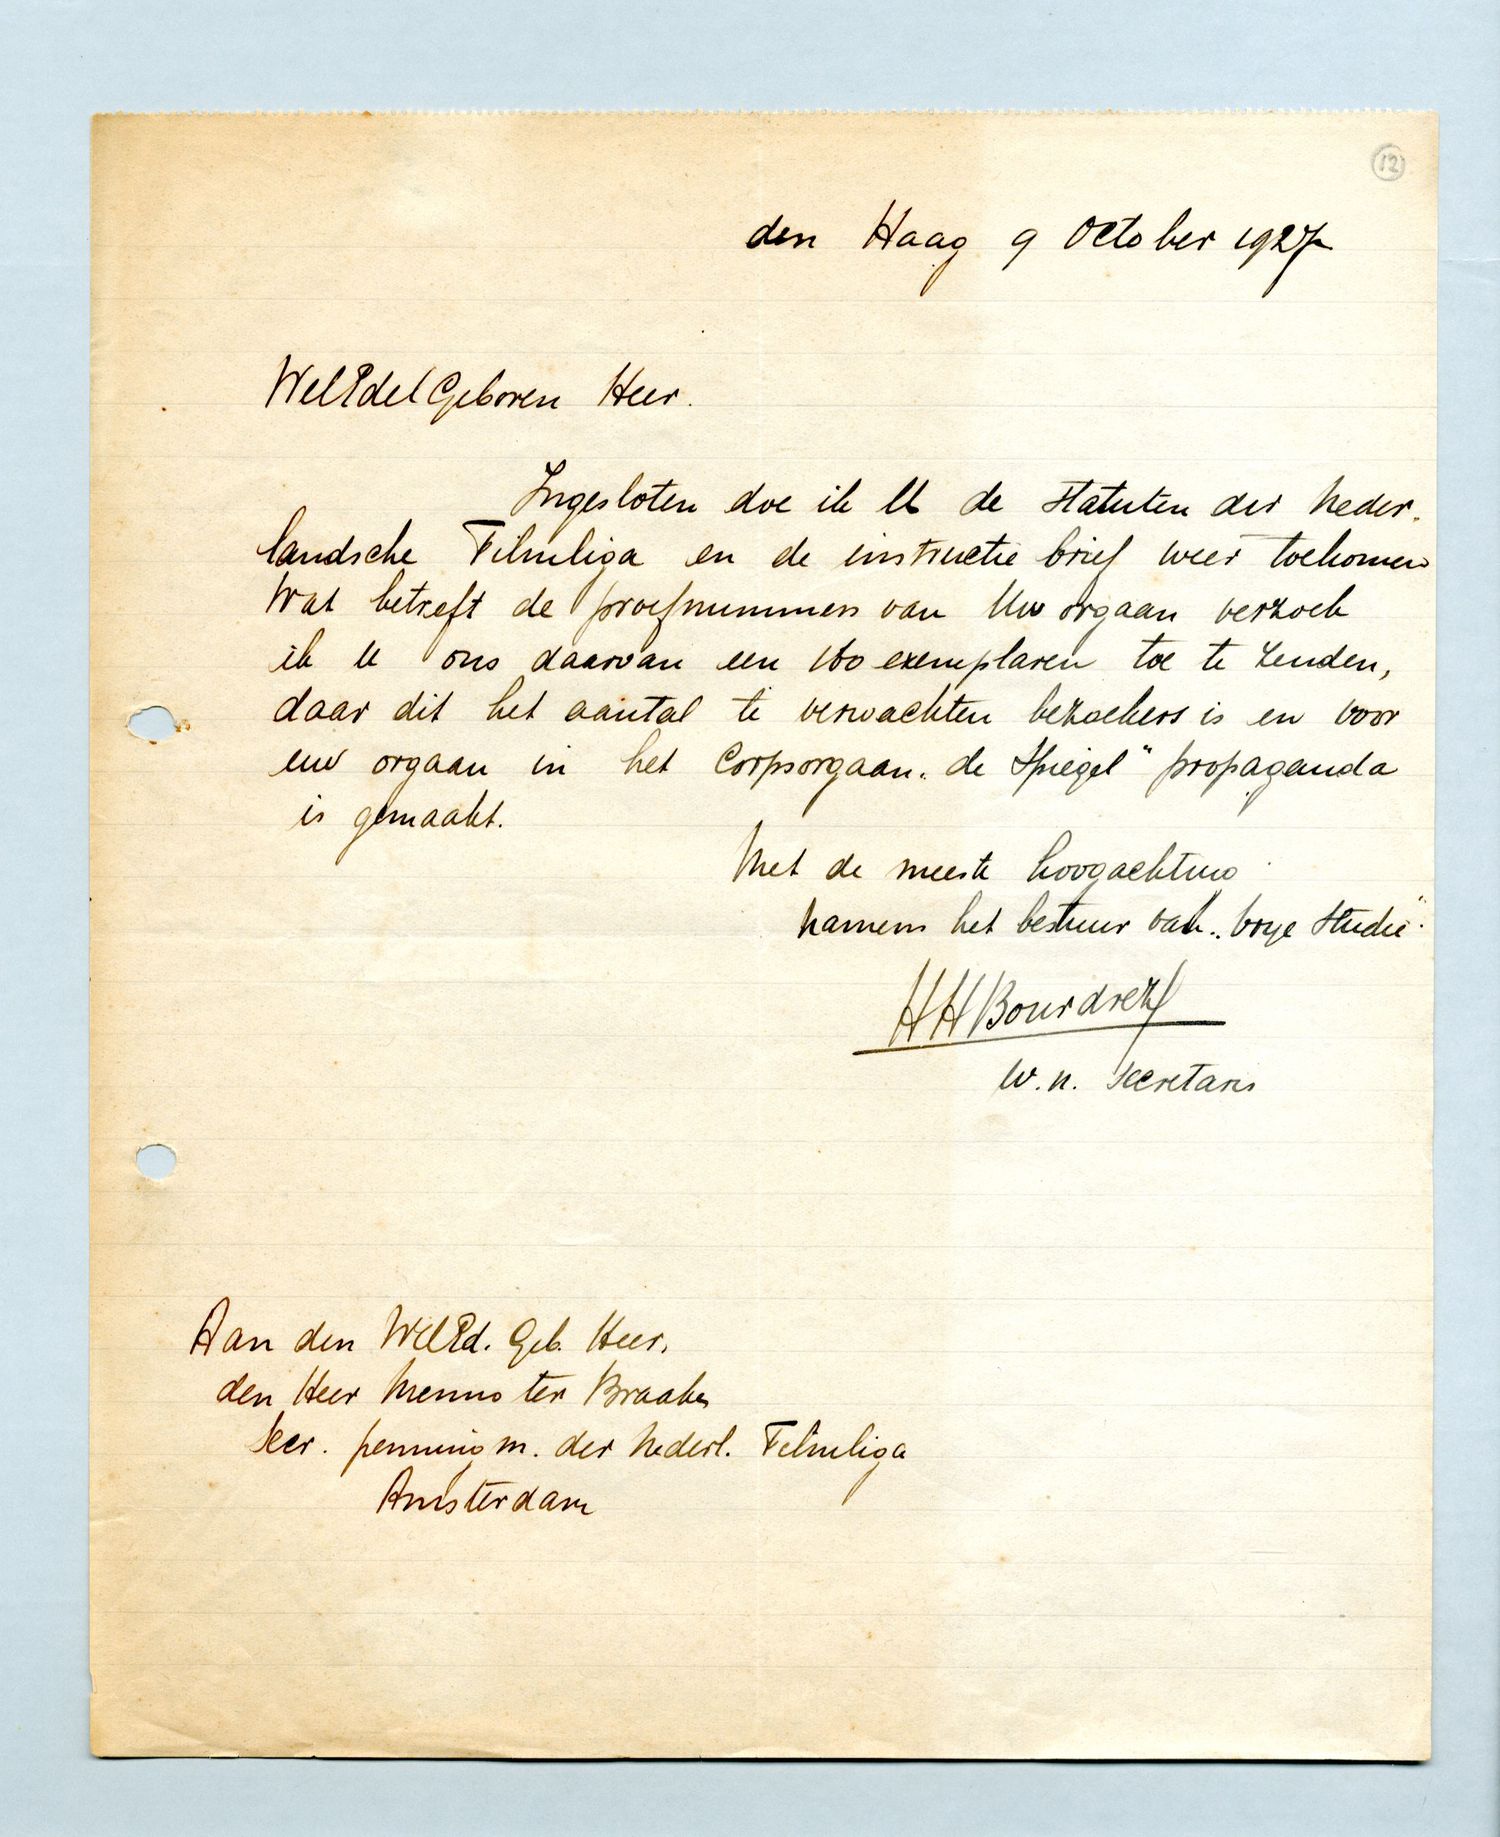 12
den Haag 9 October 1927
WelEdelGeboren Heer.
Ingesloten doe ik U de statuten der Neder-
landsche Filmliga en de instructie brief weer toekomen
Wat betreft de proefnummers van Uw orgaan verzoek
ik U ons daarvan een 100 exemplaren toe te zenden,
daar dit het aantal te verwachten bezoekers is en voor
uw orgaan in het Corpsorgaan „de Spiegel" propaganda
is gemaakt.
Met de meeste hoogachting
namens het bestuur van „Vrye Studie".
HH Bourdrez
W.n. Secretaris
Aan den WelEd. Geb. Heer,
den Heer Menno ter Braak
Secr. penningm. der Nederl. Filmliga
Amsterdam